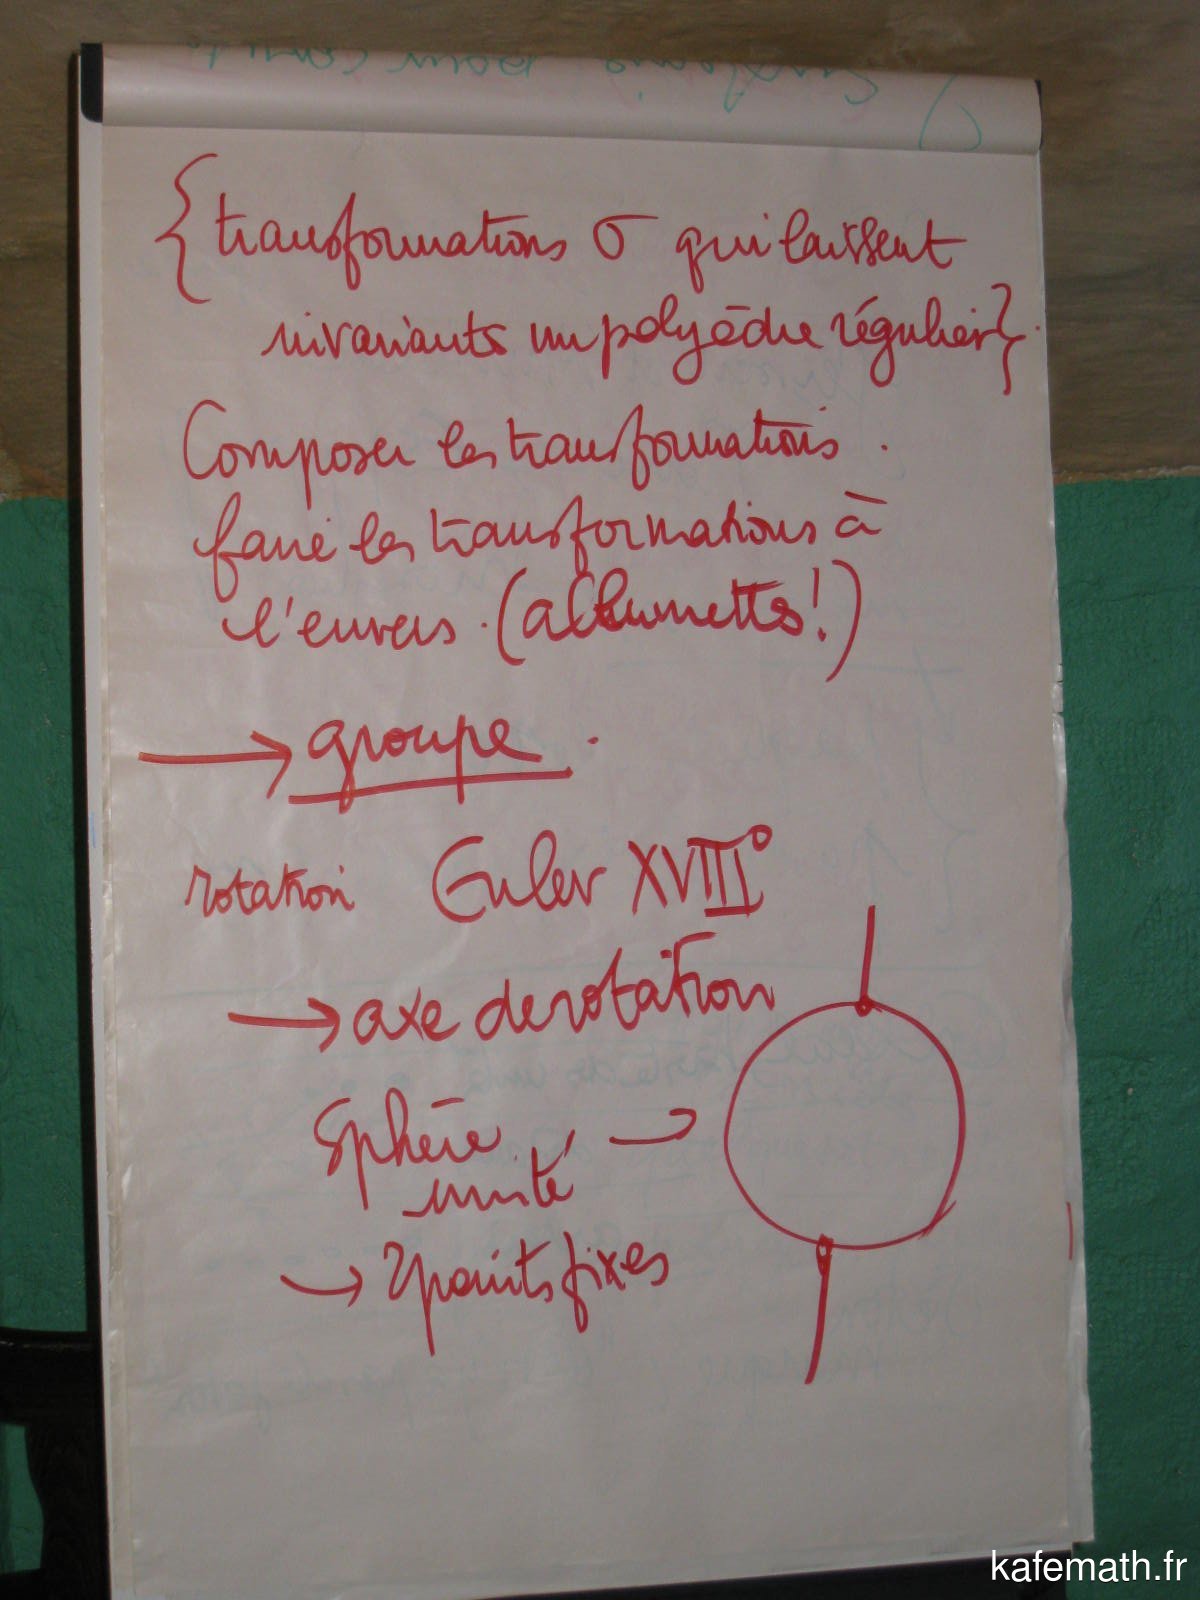 { transformations σ qui laissent
invariants un polyèdre régulier }.
Composer les transformations.
faire les transformations à
l'envers. (allumettes!)
→ groupe.
rotation Euler XVIII°
→ axe de rotation
Sphère
unité →
→ 2 points fixes
kafemath.fr